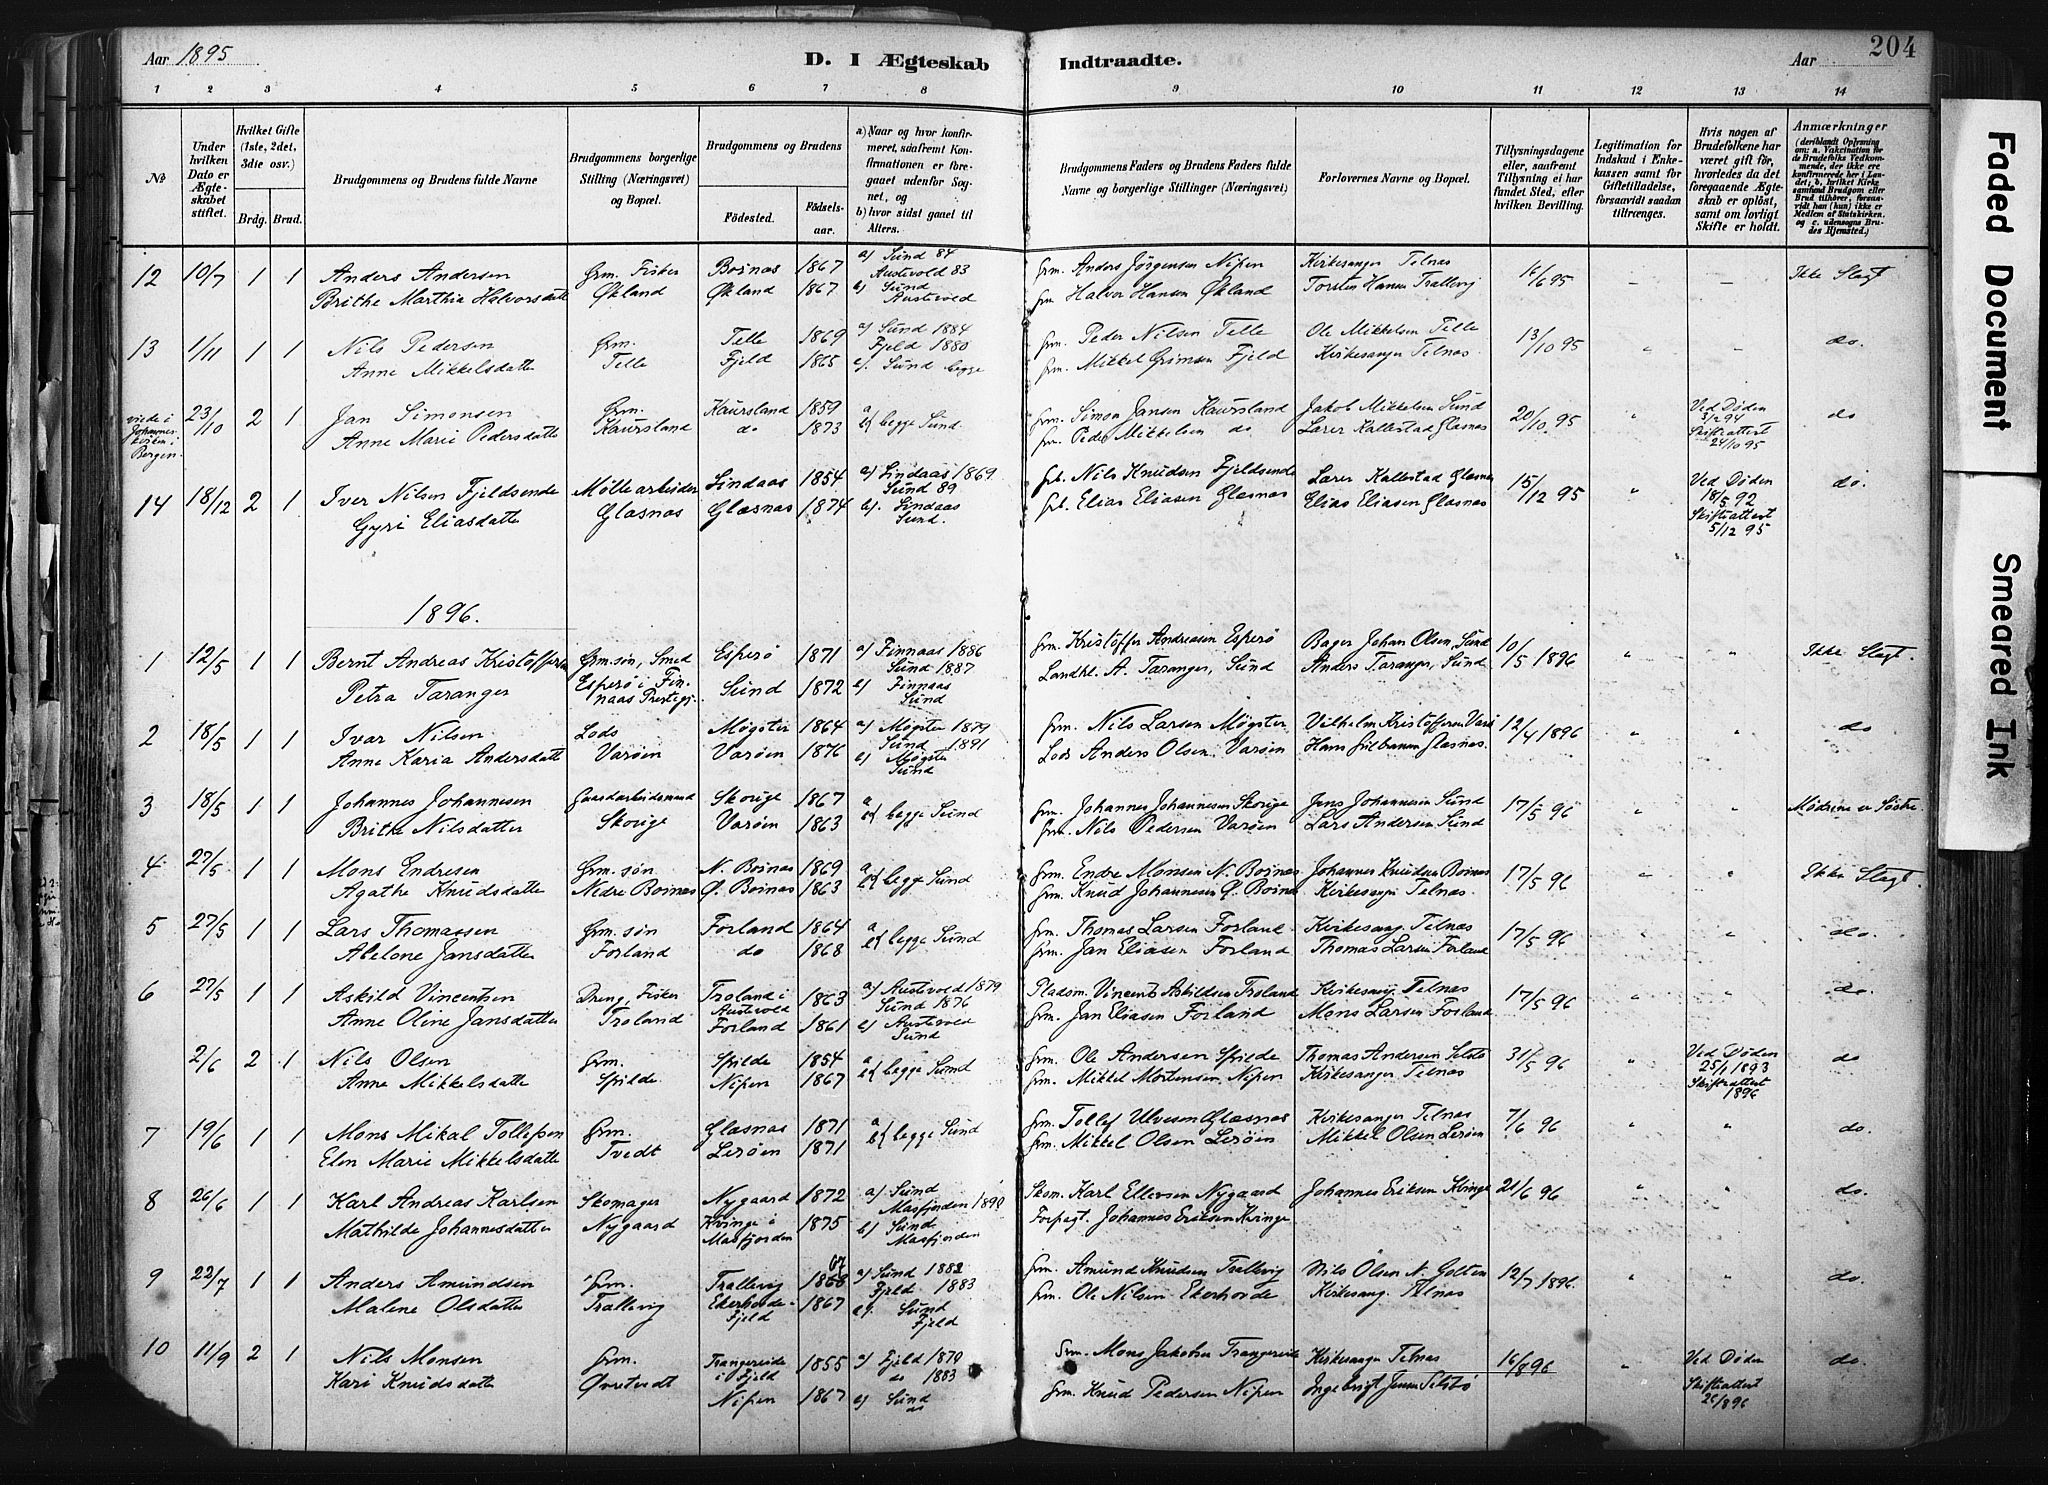 Aar 1895
D. I Ægteskab Indtraadte.
Aar
204
1 2 3 4 5 6 7 8 9 10 11 12 13 14
No
Under hvilken Dato er Ægteskabet stiftet.
Hvilket Gifte (1ste, 2det, 3die osv.)
Brdg. Brud.
Brudgommens og Brudens fulde Navne
Brudgommens borgerlige Stilling (Næringsvei) og Bopæl.
Brudgommens og Brudens
Fødested. Fødselsaar.
a) Naar og hvor konfirmeret, saafremt Konfirmationen er foregaaet udenfor Sognet, og
b) hvor sidst gaaet til Alters.
Brudgommens Faders og Brudens Faders fulde Navne og borgerlige Stillinger (Næringsvei)
Forlovernes Navne og Bopæl.
Tillysningsdagene eller, saafremt Tillysning ei har fundet Sted, efter hvilken Bevilling.
Legitimation for Indskud i Enkekassen samt for Giftetilladelse, forsaavidt saadan tiltrænges.
Hvis nogen af Brudefolkene har været gift før, hvorledes da det foregaaende Ægteskab er opløst, samt om lovligt Skifte er holdt.
Anmærkninger (deriblandt Oplysning om: a. Vaccination for de Brudefolks Vedkommende, der ikke ere konfirmerede her i Landet, b. hvilket Kirkesamfund Brudgom eller Brud tilhører, forsaavidt han (hun) ikke er Medlem af Statskirken, og c. udensogns Brudes Hjemsted.)
12 10/7 1 1 Anders Andersen Grm. Fisker Boinas 1867 a) Sund 84 Grm. Anders Jörgensen Nipen Kirkesanger Telnas 16/6 95 - - Ikke Slegt
Brithe Marthia Halvorsdatte Økland Økland 1867 Austevold 83 Grm Halvor Hansen Økland Torsten Hansen Trallevig
b) Sund Austevold
13 1/11 1 1 Nils Pedersen Grm. Telle 1869 a) Sund 1884 Grm. Peder Nilsen Telle Ole Mikkelsen Telle 13/10 95 " " do.
Anne Mikkelsdatte Telle Fjeld 1865 Fjeld 1880 Grm. Mikkel Grimsen Fjeld Kirkesanger Telnas
b. Sund begge
viede i Johanneskirken i Bergen 23/10 2 1 Jan Simonsen Grm. Kaursland 1859 a Grm. Simon Jansen Kaursland Jakob Mikkelsen Sund 20/10 95 " Ved Døden 3/2 94 do
Anne Marie Pedersdatte Kaursland do 1873 b begge Sund. Grm. Peder Mikkelsen do Lærer Kallestad Glasnas Skifteattest 24/10 95
14 18/12 2 1 Iver Nilsen Fjeldsende Møllearbeider Lindaas 1854 a) Lindaas 1869 Grb. Nils Knudsen Fjeldsende Lærer Kallestad Glasnas 15/12 95 " Ved Døden 18/5 92 do.
Gyri Eliasdatte Glasnas Glasnas 1874 Sund 89 Grb. Elias Eliasen Glasnas Elias Eliasen Glasnas Skifteattest 5/12 95
b. Lindaas Sund.
1896.
1 12/5 1 1 Bernt Andreas Kristoffersen Grm.søn, Smed Esperø 1871 a) Finnaas 1886 Grm. Kristoffer Andreasen Esperø Bager Johan Olsen, Sund 10/5 1896 " " Ikke Slegt.
Petra Taranger Esperø i Finnaas Prestegj. Sund 1872 Sund 1887 Landhl. A. Taranger, Sund Anders Taranger, Sund
b) Finnaas Sund
2 18/5 1 1 Ivar Nilsen Lods Møgster 1864 a) Møgster 1879 Grm. Nils Larsen Møgster Vilhelm Kristoffersen Varø 12/4 1896 " " do
Anne Karia Andersdatte Varøen Varøen 1876 Sund 1891 Lods Anders Olsen Varøen Hans Glasnas.
b) Møgster Sund
3 18/5 1 1 Johannes Johannesen Gaardarbeidsmand Skorige 1867 a Grm. Johannes Johannesen Skorige Jens Johannesen Sund 17/5 96 " " Mødrene er Søstre.
Brithe Nilsdatter Skorige Varøen 1863 b begge Sund Grm. Nils Pedersen Varøen Lars Andersen Sund
4 27/5 1 1 Mons Endresen Grm. søn N. Boinas 1869 a Grm. Endre Monsen N. Boinas Johannes Knudsen Boinas 17/5 96 " " Ikke Slegt.
Agathe Knudsdatter Nedre Boinas Ø. Boinas 1863 b begge Sund Grm. Knud Johannesen Ø. Boinas Kirkesanger Telnas
5 27/5 1 1 Lars Thomassen Grm. søn Forland 1864 a Grm. Thomas Larsen Forland Kirkesang. Telnas 17/5 96 " " do.
Abelone Jansdatter Forland do 1868 b begge Sund Grm. Jan Eliasen Forland Thomas Larsen Forland
6 27/5 1 1 Askild Vincentsen Dreng, Fisker Troland i Austevold 1863 a) Austevold 1879 Pladsm. Vincents Askildsen Troland Kirkesang. Telnas 17/5 96 " " do.
Anne Oline Jansdatter Troland Forland 1861 Sund 1876 Grm. Jan Eliasen Forland Mons Larsen Forland
b) Austevold Sund
2/6 2 1 Nils Olsen Grm. Spilde 1854 a Grm. Ole Andersen Spilde Thomas Andersen Selstø 31/5 96 " Ved Døden 25/1 1893 do
Anne Mikkelsdatte Spilde Nipen 1867 b begge Sund Grm. Mikkel Mortensen Nipen Kirkesanger Telnas Skifteattest 1896
7 19/6 1 1 Mons Mikal Tollefsen Grm. Glasnas 1871 a Grm. Tollef Ulvesen Glasnas Kirkesanger Telnas 7/6 96 " " do.
Elen Marie Mikkelsdatte Tvedt Lerøen 1871 b begge Sund Grm. Mikkel Olsen Lerøen Mikkel Olsen Lerøen
8 26/6 1 1 Karl Andreas Karlsen Skomager Nygaard 1872 a) Sund Skom. Karl Ellevsen Nygaard Johannes Eriksen Kvinge 21/6 96 " " do.
Mathilde Johannesdatter Nygaard Kvinge i Masfjorden 1875 Masfjorden 1890 Forpagt. Johannes Eriksen Kvinge
b) Sund Masfjorden
9 22/7 1 1 Anders Amundsen Grm. Trallevig 1868 67 a) Sund 1882 Grm. Amund Knudsen Trallevig Nils Olsen N. Golten 12/7 1896 " " do.
Malene Olsdatter Trallevig Ekerhovde Fjeld 1867 Fjeld 1883 Grm. Ole Nilsen Ekerhovde Kirkesang. Telnas
b). Sund Fjeld
10 11/9 2 1 Nils Monsen Grm. Trangereide i Fjeld 1855 a) Fjeld 1870 Grm. Mons Jakobsen Trangereide Kirkesanger Telnas 16/8 96 " Ved Døden do.
Kari Knudsdatte Øvretvedt Nipen 1867 do 1883 Grm. Knud Pedersen Nipen Ingebrigt Jensen Selstø Skifteattest 26/8 96
b) Sund
Faded Document
Smeared Ink